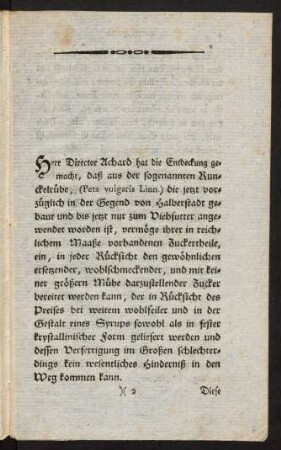 Herr Director Achard hat die Entdeckung ge-
macht, daß aus der sogenannten Run-
ckelrübe, (Peta vulgaris Linn.) die jetzt vor-
züglich in der Gegend von Halberstadt ge-
baut und bis jetzt nur zum Viehfutter ange-
wendet worden ist, vermöge ihrer in reich-
lichem Maaße vorhandenen Zuckertheile,
ein, in jeder Rücksicht den gewöhnlichen
ersetzender, wohlschmeckender, und mit kei-
ner größern Mühe darzustellender Zucker
bereitet werden kann, der in Rücksicht des
Preises bei weitem wohlfeiler und in der
Gestalt eines Syrups sowohl als in fester
krystallinischer Form geliefert werden und
dessen Verfertigung im Großen schlechter-
dings kein wesentliches Hinderniß in den
Weg kommen kann.
)( 2 Diese